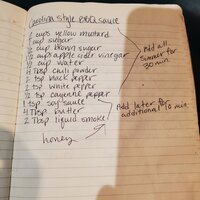 Carolina Style BBQ sauce
2 cups yellow mustard
1 cup sugar
1/2 cup brown sugar
1 1/2 cups apple cider vinegar
1/2 cup water
4 Tbsp chili powder
2 tsp black pepper
2 tsp white pepper
1/2 tsp cayenne pepper
Add all
simmer for
30 min
1 tsp soy sauce
4 Tbsp butter
2 Tbsp liquid smoke
Add later for
additional 10 min
honey